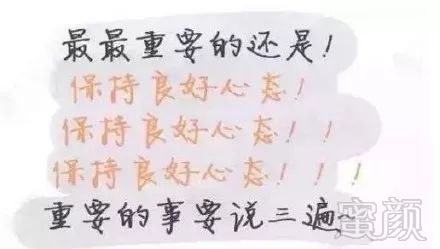 最最重要的还是！
保持良好心态！
保持良好心态！！
保持良好心态！！！
重要的事要说三遍~
蜜颜